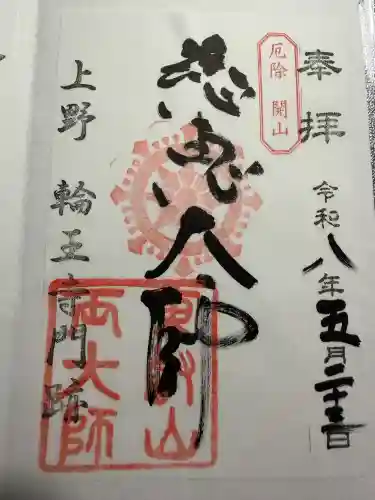 奉拝
厄除 開山
令和八年五月二十三日
慈恵大師
両大師
上野 輪王寺門跡